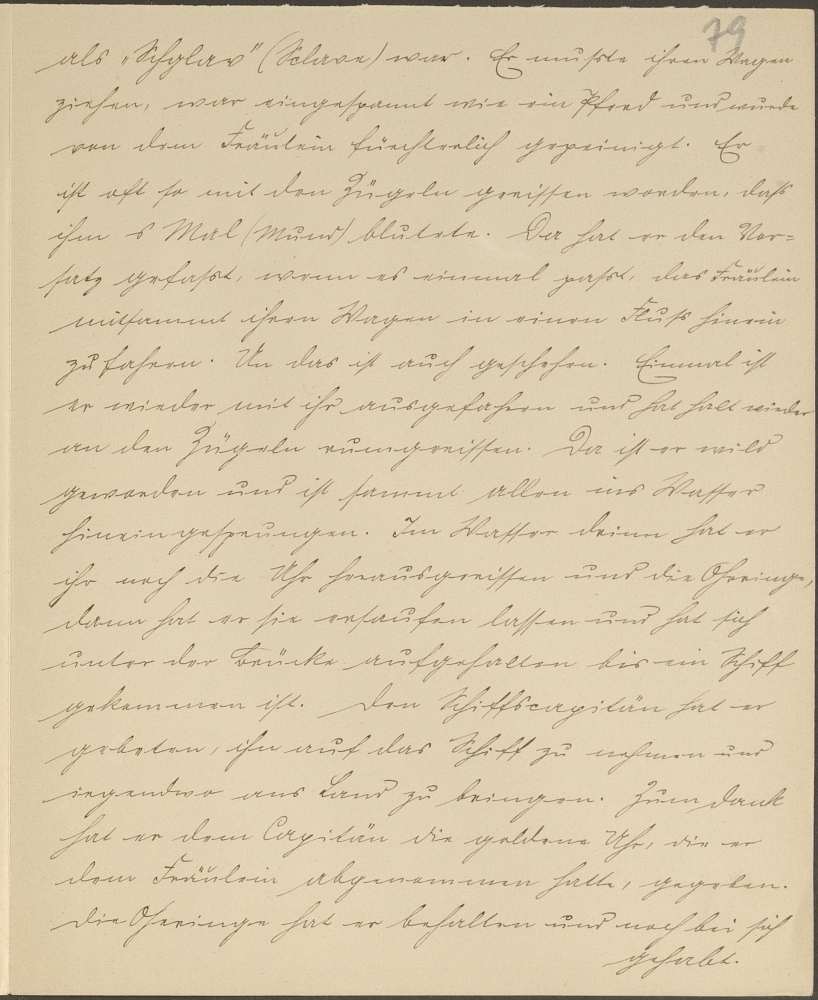 79
als „Schglav" (Sclave) war. Er mußte ihren Wagen
ziehen, war eingespannt wie ein Pferd und wurde
von dem Fräulein fürchterlich gepeinigt. Er
ist oft so mit den Zügeln greissen worden, daß
ihm s Mal (Mund) blutete. Da hat er den Vor=
satz gefaßt, wenn es einmal paßt, das Fräulein
mitsammt ihren Wagen in einen Fluß hinein
zu fahren. Un das ist auch geschehen. Einmal ist
er wieder mit ihr ausgefahren und hat halt wieder
an den Zügeln rumgreissen. Da ist er wild
geworden und ist sammt allen ins Wasser
hinein gesprungen. Im Wasser drinn hat er
ihr noch die Uhr herausgreissen und die Ohrringe,
dann hat er sie ersaufen lassen und hat sich
unter der Brücke aufgehalten bis ein Schiff
gekommen ist. Den Schiffscapitän hat er
gebeten, ihn auf das Schiff zu nehmen und
irgendwo ans Land zu bringen. Zum Dank
hat er dem Capitän die goldene Uhr, die er
dem Fräulein abgenommen hatte, gegeben.
Die Ohrringe hat er behalten und noch bei sich
gehabt.